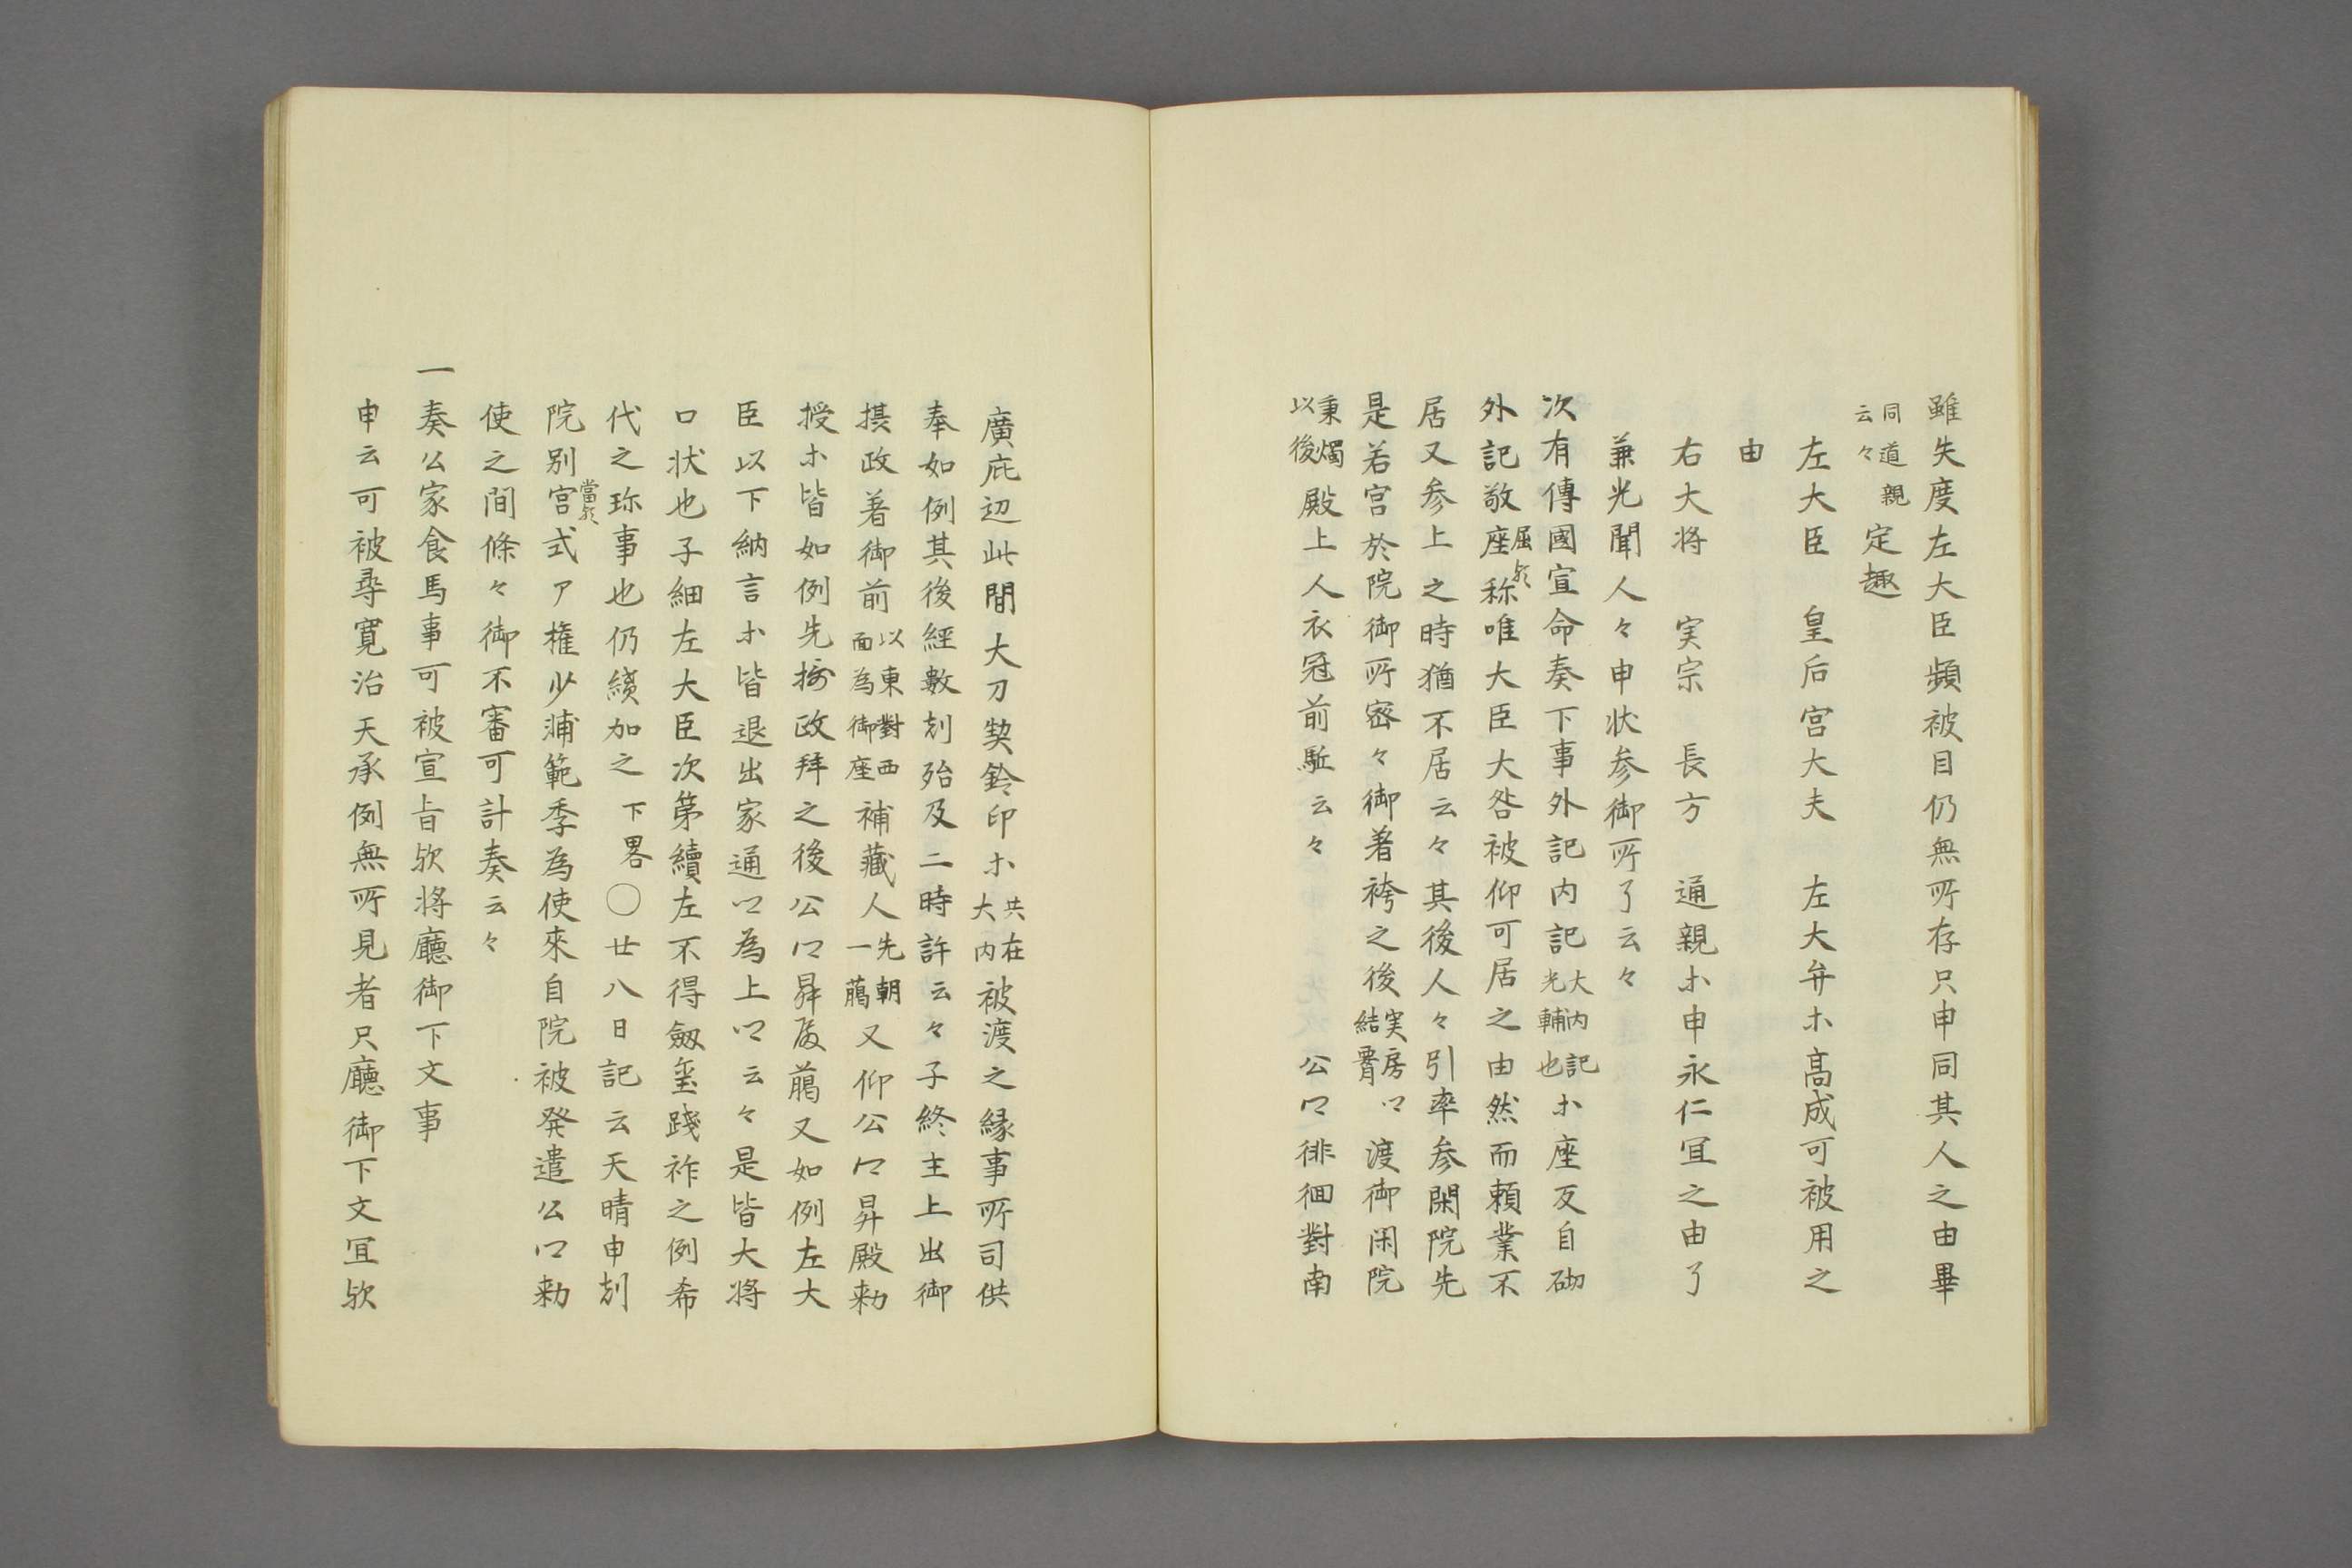 雖失度左大臣頻被目仍無所存只申同其人之由畢
同道親云々定趣
左大臣　皇后宮大夫　左大弁ホ高成可被用之
由
右大将　実宗　長方　通親ホ申永仁宜之由了
兼光聞人々申状参御所了云々
次有傳國宣命奏下事外記内記大内記光輔也ホ座反自砌
外記敬座屈歟称唯大臣大咎被仰可居之由然而頼業不
居又参上之時猶不居云々其後人々引率参閑院先
是若宮於院御所密々御著袴之後実房卿結腰渡御閑院
秉燭以後殿上人衣冠前駈云々　公卿徘徊對南
廣庇辺此間大刀契鈴印ホ共在大内被渡之縁事所司供
奉如例其後經數剋殆及二時許云々子終主上出御
摂政著御前以東對西面為御座補藏人先朝一﨟又仰公卿昇殿勅
授ホ皆如例先摂政拝之後公卿昇殿﨟又如例左大
臣以下納言ホ皆退出家通卿為上卿云々是皆大将
口状也子細左大臣次第續左不得劔璽踐祚之例希
代之珎事也仍續加之下畧〇廿八日記云天晴申剋
院別宮當歟式ア権少浦範季為使來自院被発遣公卿勅
使之間條々御不審可計奏云々
一奏公家食馬事可被宣旨欤将廳御下文事
申云可被尋寛治天承例無所見者只廳御下文冝欤